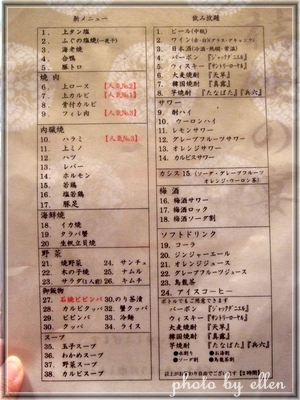 新メニュー
1. 上タン塩
2. ふぐの塩焼(一夜干)
3. 海老焼
4. 合鴨
5. 豚トロ
焼肉
6. 上ロース【人気No.2】
7. 上カルビ【人気No.1】
8. 骨付カルビ
9. フィレ肉【人気No.3】
内臓焼
10. ハラミ【人気No.3】
11. 上ミノ
12. ハツ
13. レバー
14. ホルモン
15. 若鶏
16. 塩若鶏
17. 豚足
海鮮焼
18. イカ焼
19. クラバ蟹
20. 生帆立貝焼
野菜
21. 焼野菜 24. サンチュ
22. 木の子焼 25. ナムル
23. サラダ(1人前) 26. キムチ
御飯物
27. 石焼ビビンバ 30. のり茶漬
28. カルビクッパ 31. 蟹クッパ
29. ビビンバ 32. 冷麺
30. クッパ 34. ライス
スープ
35. 玉子スープ
36. わかめスープ
37. 野菜スープ
38. カルビスープ
飲み放題
1. ビール(中瓶)
2. ワイン(赤・白)
3. 日本酒(冷酒・熱燗・常温)
4. バーボン 『ジャックダニエル』
5. ウィスキー『サントリーローヤル』
6. 大麦焼酎 『天草』
7. 韓国焼酎 『真露』
8. 芋焼酎 『たなばた』『兵六』
サワー
9. 酎ハイ
10. ウーロンハイ
11. レモンサワー
12. グレープフルーツサワー
13. オレンジサワー
14. カルピスサワー
カシス 15. (ソーダ・グレープフルーツ
オレンジ・ウーロン茶)
梅酒
16. 梅酒サワー
17. 梅酒ロック
18. 梅酒ソーダ割
ソフトドリンク
19. コーラ
20. ジンジャーエール
21. オレンジジュース
22. グレープフルーツジュース
23. 烏龍茶
24. アイスコーヒー
ボトルでもご用意できます
バーボン 『ジャックダニエル』
ウィスキー『サントリーローヤル』
大麦焼酎 『天草』
韓国焼酎 『真露』
芋焼酎 『たなばた』『兵六』
●水割り ●お湯割
●ソーダ割 ●烏龍茶割
【2時間】
photo by ellen